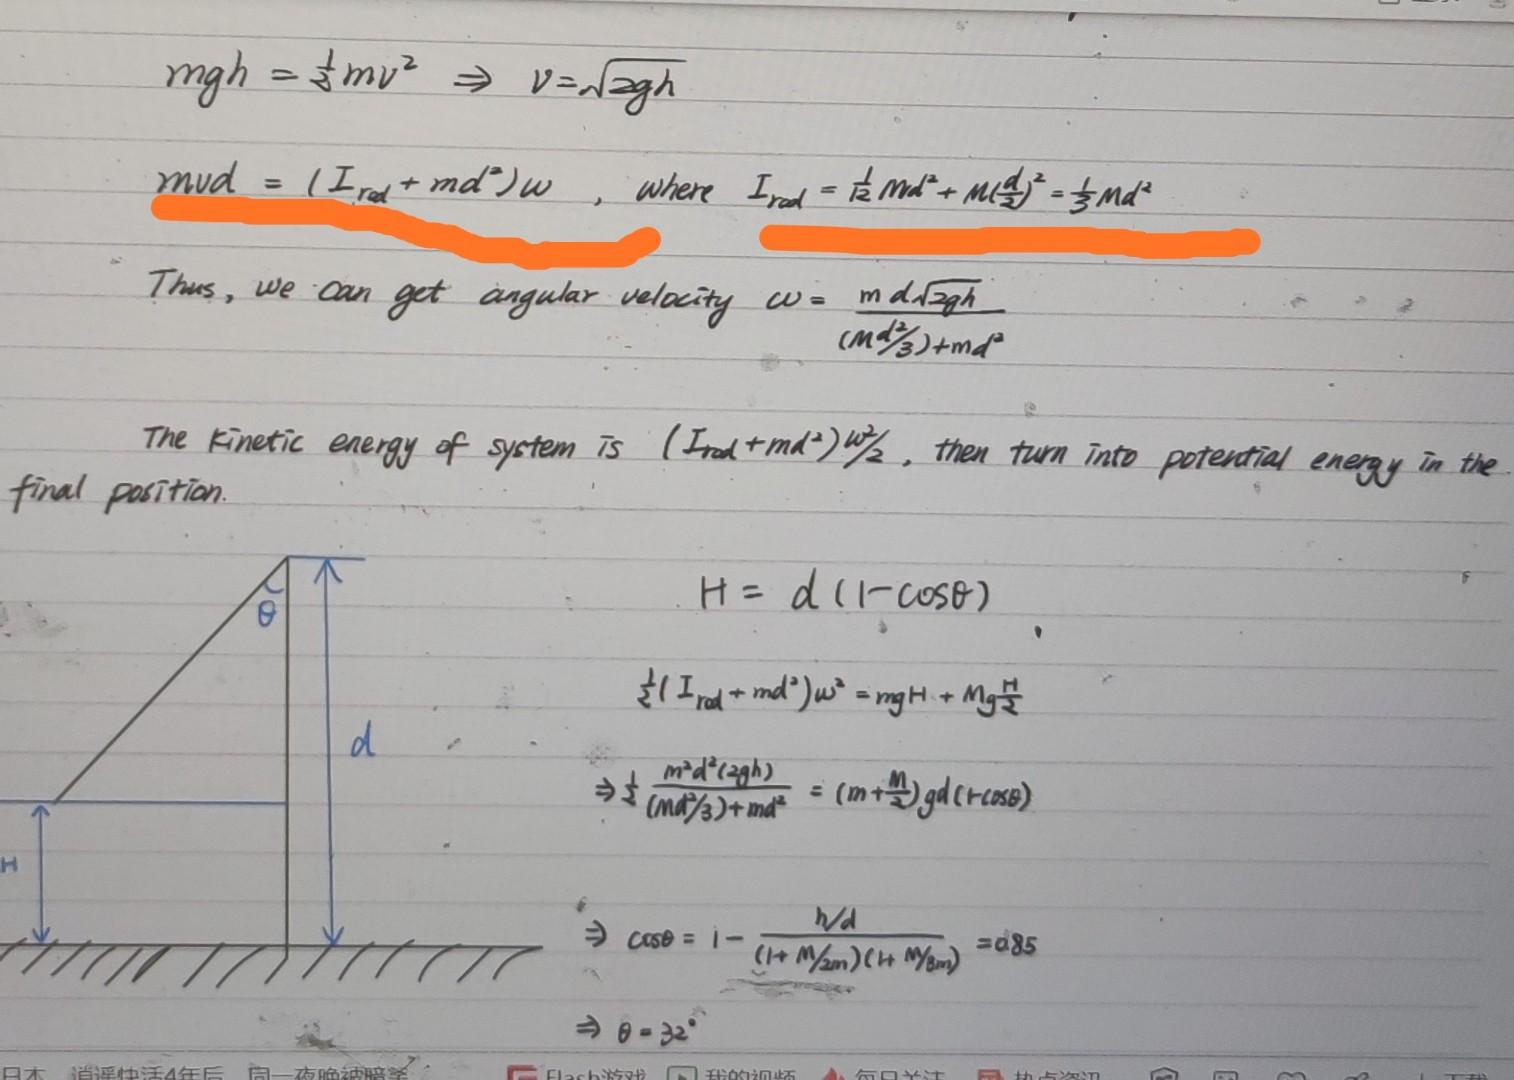 mgh = ½mv² ⇒ v = √2gh
mvd = (I_rod + md²)ω , where I_rod = 1/12 Md² + M(d/2)² = 1/3 Md²
Thus, we can get angular velocity ω = md√2gh / ((Md²/3)+md²)
The kinetic energy of system is (I_rod + md²)ω²/2, then turn into potential energy in the
final position.
θ
d
H
H = d(1-cosθ)
½(I_rod + md²)ω² = mgH + Mg H/2
⇒ ½ m²d²(2gh) / ((Md²/3)+md²) = (m+M/2)gd(1-cosθ)
⇒ cosθ = 1 - (h/d) / ((1+M/2m)(1+M/3m)) = 0.85
⇒ θ = 32°
日本 逍遥快活4年后 同一夜晚被暗杀 Flash游戏 我的视频 每日关注 热点资讯 下载